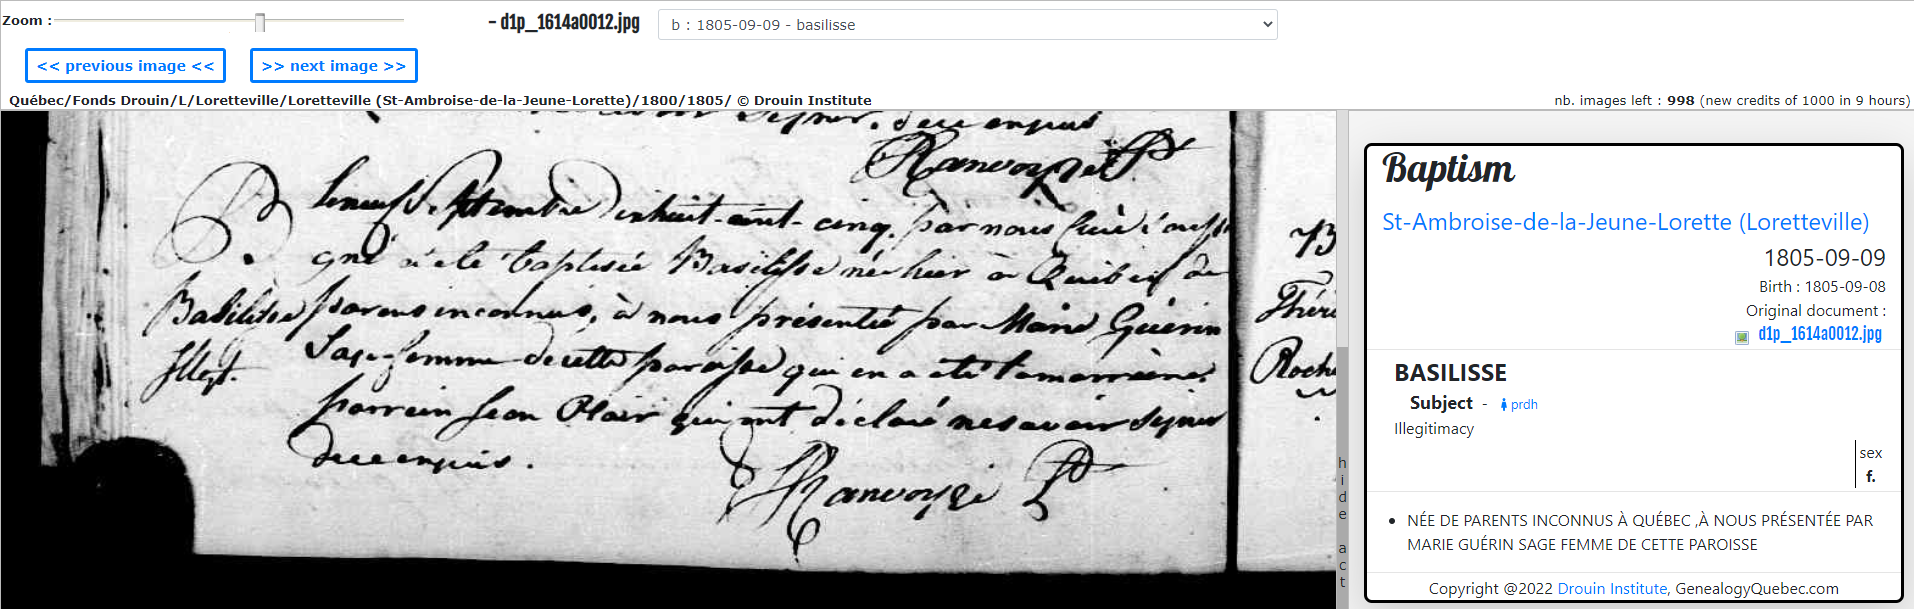 Zoom :
- d1p_1614a0012.jpg
b : 1805-09-09 - basilisse
<< previous image <<
>> next image >>
Québec/Fonds Drouin/L/Loretteville/Loretteville (St-Ambroise-de-la-Jeune-Lorette)/1800/1805/ © Drouin Institute
nb. images left : 998 (new credits of 1000 in 9 hours)
signer. de ce enquis
Ranvoyzé Ptre
B.
Basilisse
Illegt.
Le neuf Septembre dix huit-cent-cinq, par nous Curé soussi
gné a été baptisée Basilisse née hier à Québec de
parens inconnus, à nous présentée par Marie Guérin
Sage femme de cette paroisse qui en a été la marraine.
parrein Jean Plair qui ont déclaré ne savoir signer
de ce enquis.
Ranvoyzé Ptre
B
Thér
Roch
hide act
Baptism
St-Ambroise-de-la-Jeune-Lorette (Loretteville)
1805-09-09
Birth : 1805-09-08
Original document :
d1p_1614a0012.jpg
BASILISSE
Subject - prdh
Illegitimacy
sex
f.
• NÉE DE PARENTS INCONNUS À QUÉBEC ,À NOUS PRÉSENTÉE PAR
MARIE GUÉRIN SAGE FEMME DE CETTE PAROISSE
Copyright @2022 Drouin Institute, GenealogyQuebec.com